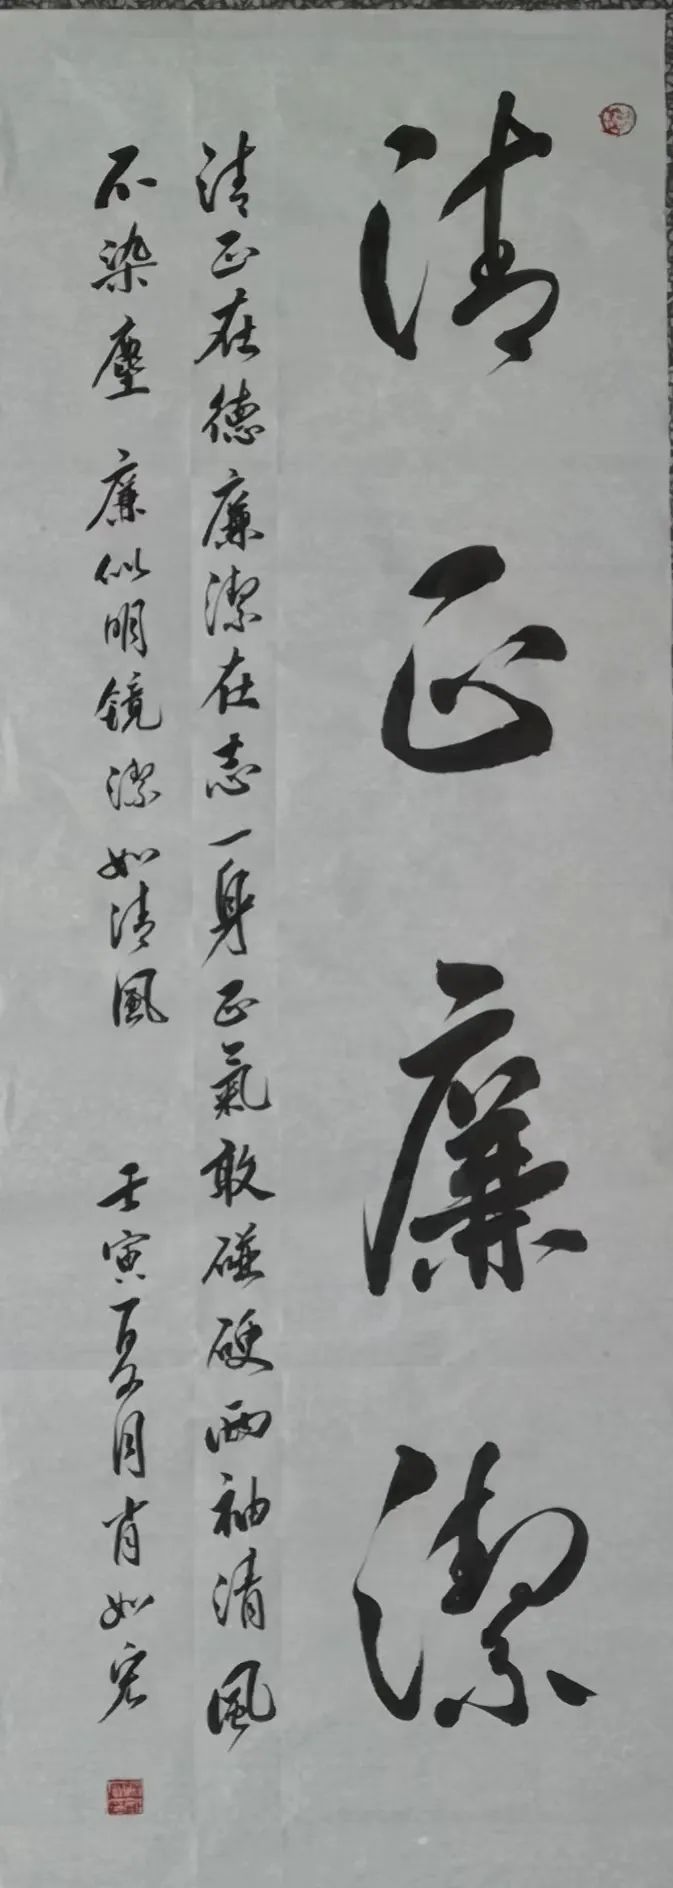 清正廉潔
清正在德廉潔在志一身正氣敢碰硬兩袖清風
不染塵廉似明鏡潔如清風 壬寅夏月肖如宏